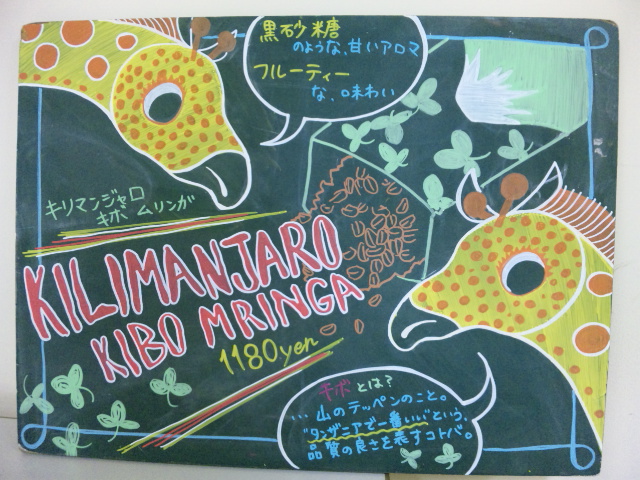 黒砂糖
のような、甘いアロマ
フルーティー
な、味わい
キリマンジャロ
キボ ムリンガ
KILIMANJARO
KIBO MRINGA
1180yen
キボとは?
...山のテッペンのこと。
"タンザニアで一番いい"という、
品質の良さを表すコトバ。